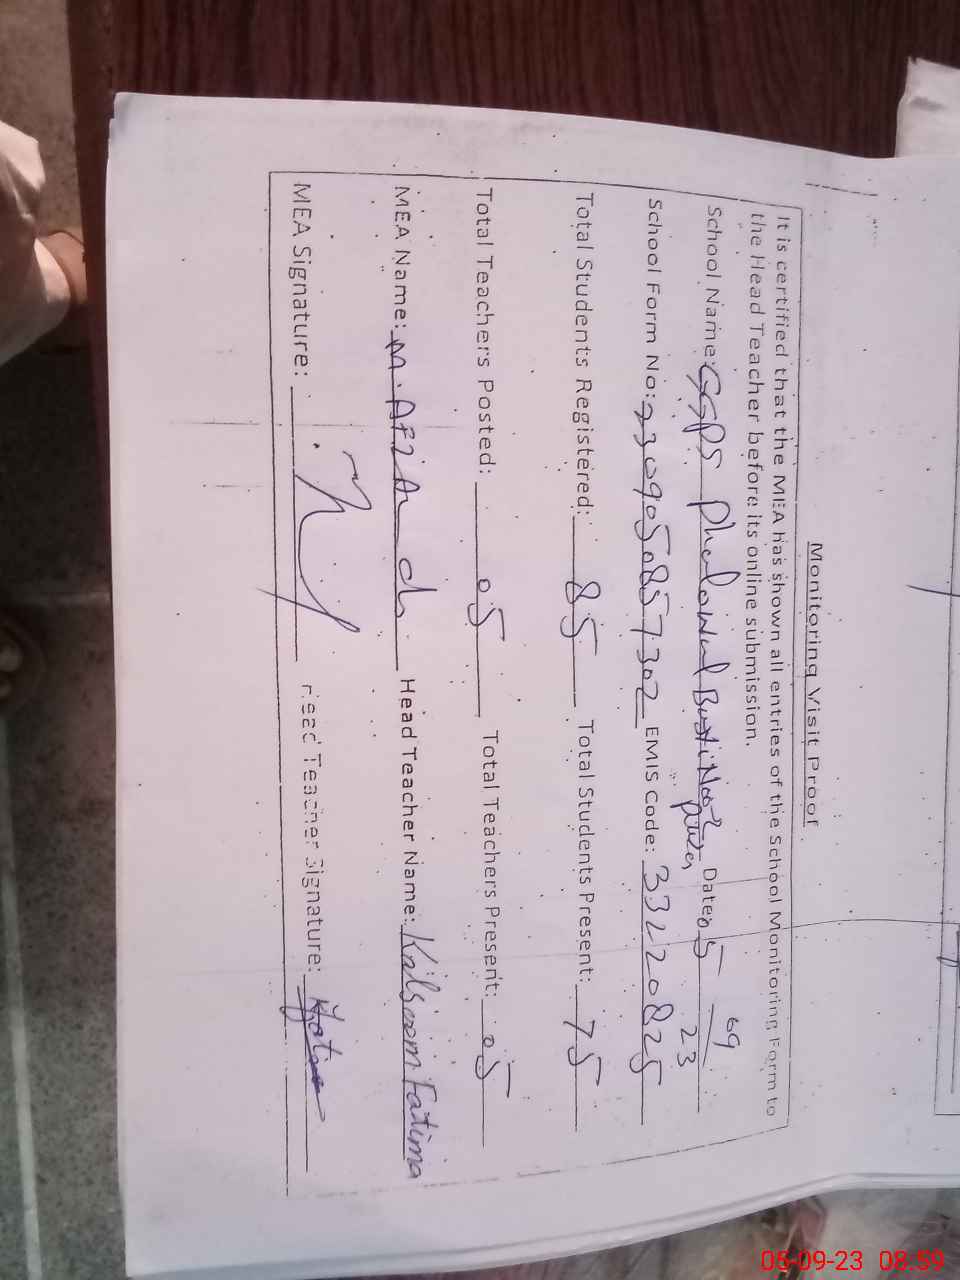 Monitoring Visit Proof
It is certified that the MEA has shown all entries of the School Monitoring Form to
the Head Teacher before its online submission.
School Name: GGPS Phalowal Basti Noor Pura Date: 05 09/23
School Form No: 2309050857302 EMIS Code: 33220825
Total Students Registered: 85 Total Students Present: 75
Total Teachers Posted: 05 Total Teachers Present: 05
MEA Name: M. Afzal Head Teacher Name: Kalsoom Fatima
MEA Signature: Head Teacher Signature:
05-09-23 08:59